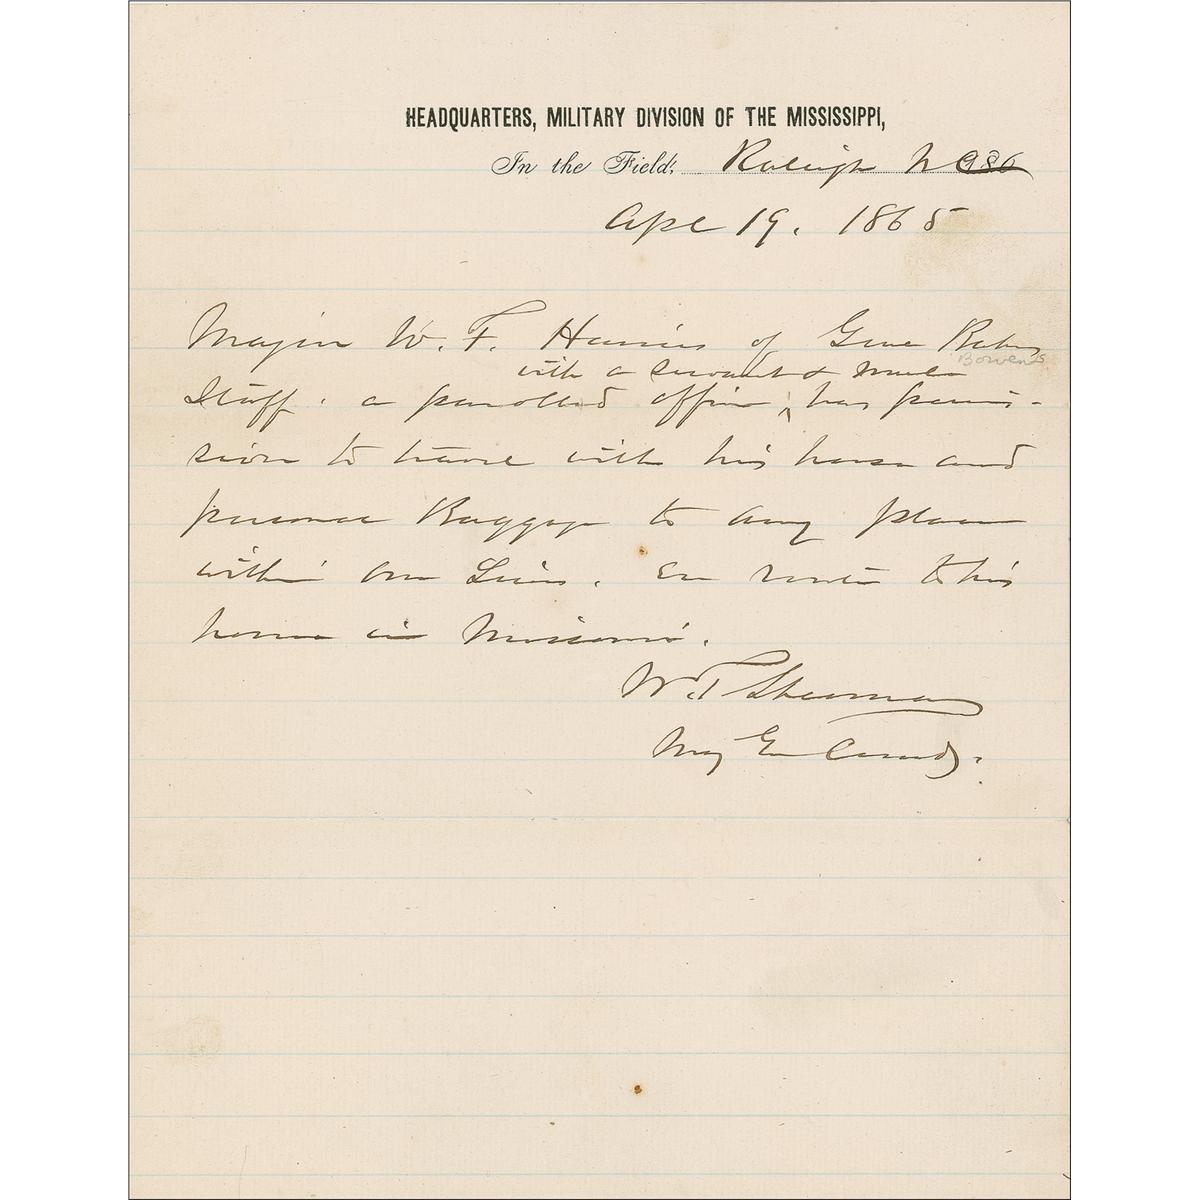 HEADQUARTERS, MILITARY DIVISION OF THE MISSISSIPPI,
In the Field, Raleigh N C 186
Apl 19. 1865
Major W. F. Harris of Genl
Bowen's
with a servant & mule
Staff. a parolled officer, has permis-
sion to travel with his horse and
personal Baggage to any place
within our Lines. En route to his
home in Missouri.
W. T. Sherman
Maj Gen Comdg.